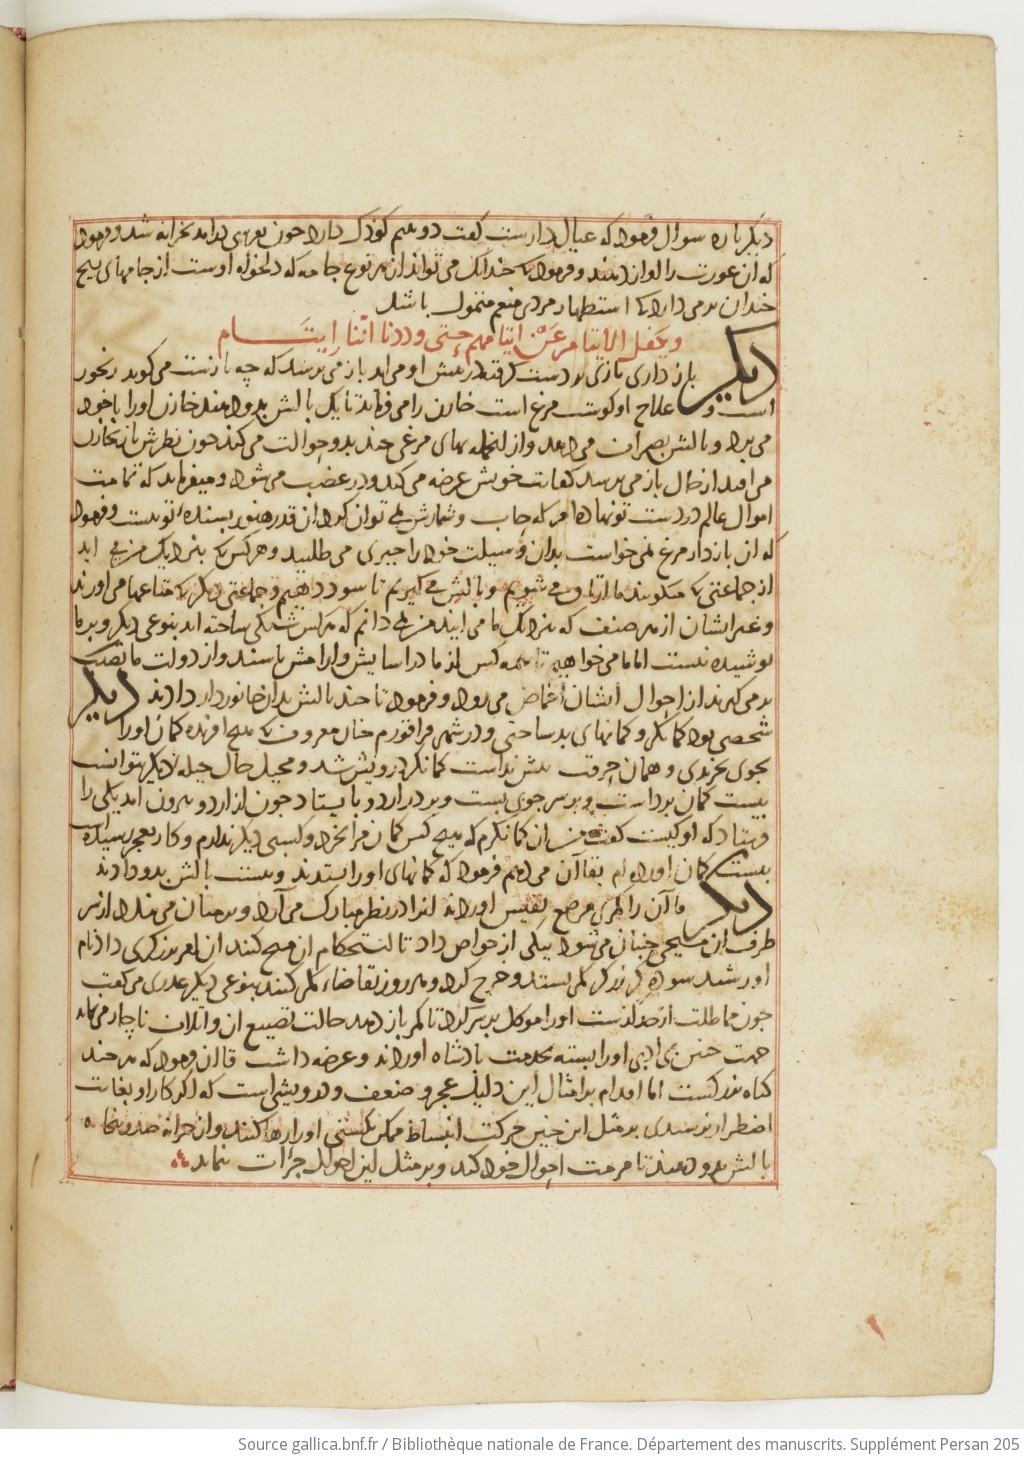 دیکر باره سوال فرمود که عیال دارست کفت دو نیم کوذک دارد جون بعهدی درامد بخزانه شد و فرمود
که ان عورت را اواز دهند و فرمود تا جندانک می تواند از هر نوع جامه که دلخواه اوست از جامهای نسیج
جندان بر می دارد تا استظهار مردی منعم متمول باشد
و یجعل الایتام عن ایتامهم حتی وددنا اننا ایتام
دیکر بازداری بازی بر دست کرفته در پیش او می اید باز می پرسد که چه بازست می کوید رنجور
است و علاج او کوشت مرغ است خازن را می فرماید تا یک بالش بدو دهند خازن او را با خود
می برد و بالش بصراف می دهد و از انجمله بهای مرغی جند بدو حوالت می کند جون نظرش باز بخازن
می افتد از حال باز می پرسد کفایت خویش عرضه می کند در غضب می شود و میفرماید که تمامت
اموال عالم در دست تو نهادهام که حساب و شمارش نمی توان کرد ان قدر هنوز بسنده تو نیست و فرمود
که ان بازدار مرغ نمی خواست بدان وسیلت خود را چیزی می طلبید و هر کس که بنزدیک من می اید
از جماعتی که میکویند ما ارتاق می شویم و بالش می کیریم تا سود دهیم و جماعتی دیکر که متاعها می اورند
و غیر ایشان از هر صنف که بنزدیک ما می ایند من می دانم که هر کس شبکی ساخته اند بنوعی دیکر و بر ما
پوشیده نیست اما ما می خواهیم تا همه کس از ما در اسایش و ارامش باشند و از دولت ما نصیب
بر می کیرند از احوال ایشان اغماض می رود و فرمود تا جند بالش بدان جانوردار دادند دیکر
شخصی بود کمانکر و کمانهای بد ساختی و در شهر قراقورم جنان معروف که هیچ افریده کمان او را
بجوی نخریدی و همان حرفت بیش نداست کمانکر درویش شد و مختل حال حیله دیکر نتوانست
بیست کمان برداشت و بر سر جوبی بست و بر در اردو بایستاد جون از اردو بیرون امد یکی را
فرستاد که او کیست کفت من ان کمانکرم که هیچ کس کمان من نخرد و کسبی دیکر ندارم و کار بعجز رسیده است
بیست کمان اورده ام بقاآن می دهم فرمود که کمانهای او را بستدند و بیست بالش بدو دادند
دیکر قاآن را کمری مرصع نفیس اوردند انرا در نظر مبارک می آرد و بر میان می بندد از سر
طرف ان میخی جنبان می شود بیکی از خواص داد تا استحکام ان میخ کنند ان کمر بزرکری داد نام
او رشید سوداکر زرکر کمر بستد و خرج کرد و هر روز تقاضاء کمر کنند بنوعی دیکر عذری می کفت
جون مماطلت از حد کذشت او را موکل بر سر کرد تا کمر باز دهد حالت تضییع ان و اتلاف ناچار می نماید
جهت جنین بی ادبی او را بسته بخدمت بادشاه اوردند و عرضه داشت قاآن فرمود که هر جند
کناه بزرکست اما اقدام بر امثال این دلیل عجز و ضعف و درویشی است که اکر کار او بغایت
اضطرار نرسیدی بر مثل این جنین حرکت انبساط ممکن نکشتی او را رها کنند و از خزانه صد و پنجاه
بالش بدو دهند تا مرمت احوال خود کند و بر مثل این احوال جرات ننماید
Source gallica.bnf.fr / Bibliothèque nationale de France. Département des manuscrits. Supplément Persan 205